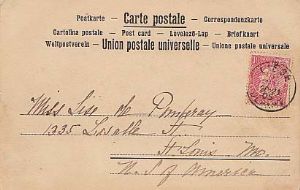 Postkarte – Carte postale – Correspondenzkarte
Cartolina postale – Post card – Levelező-Lap – Briefkaart
Weltpostverein – Union postale universelle – Unione postale universale
Miss Lise de
1335 Lasalle St.
St Louis Mo.
U.S of America